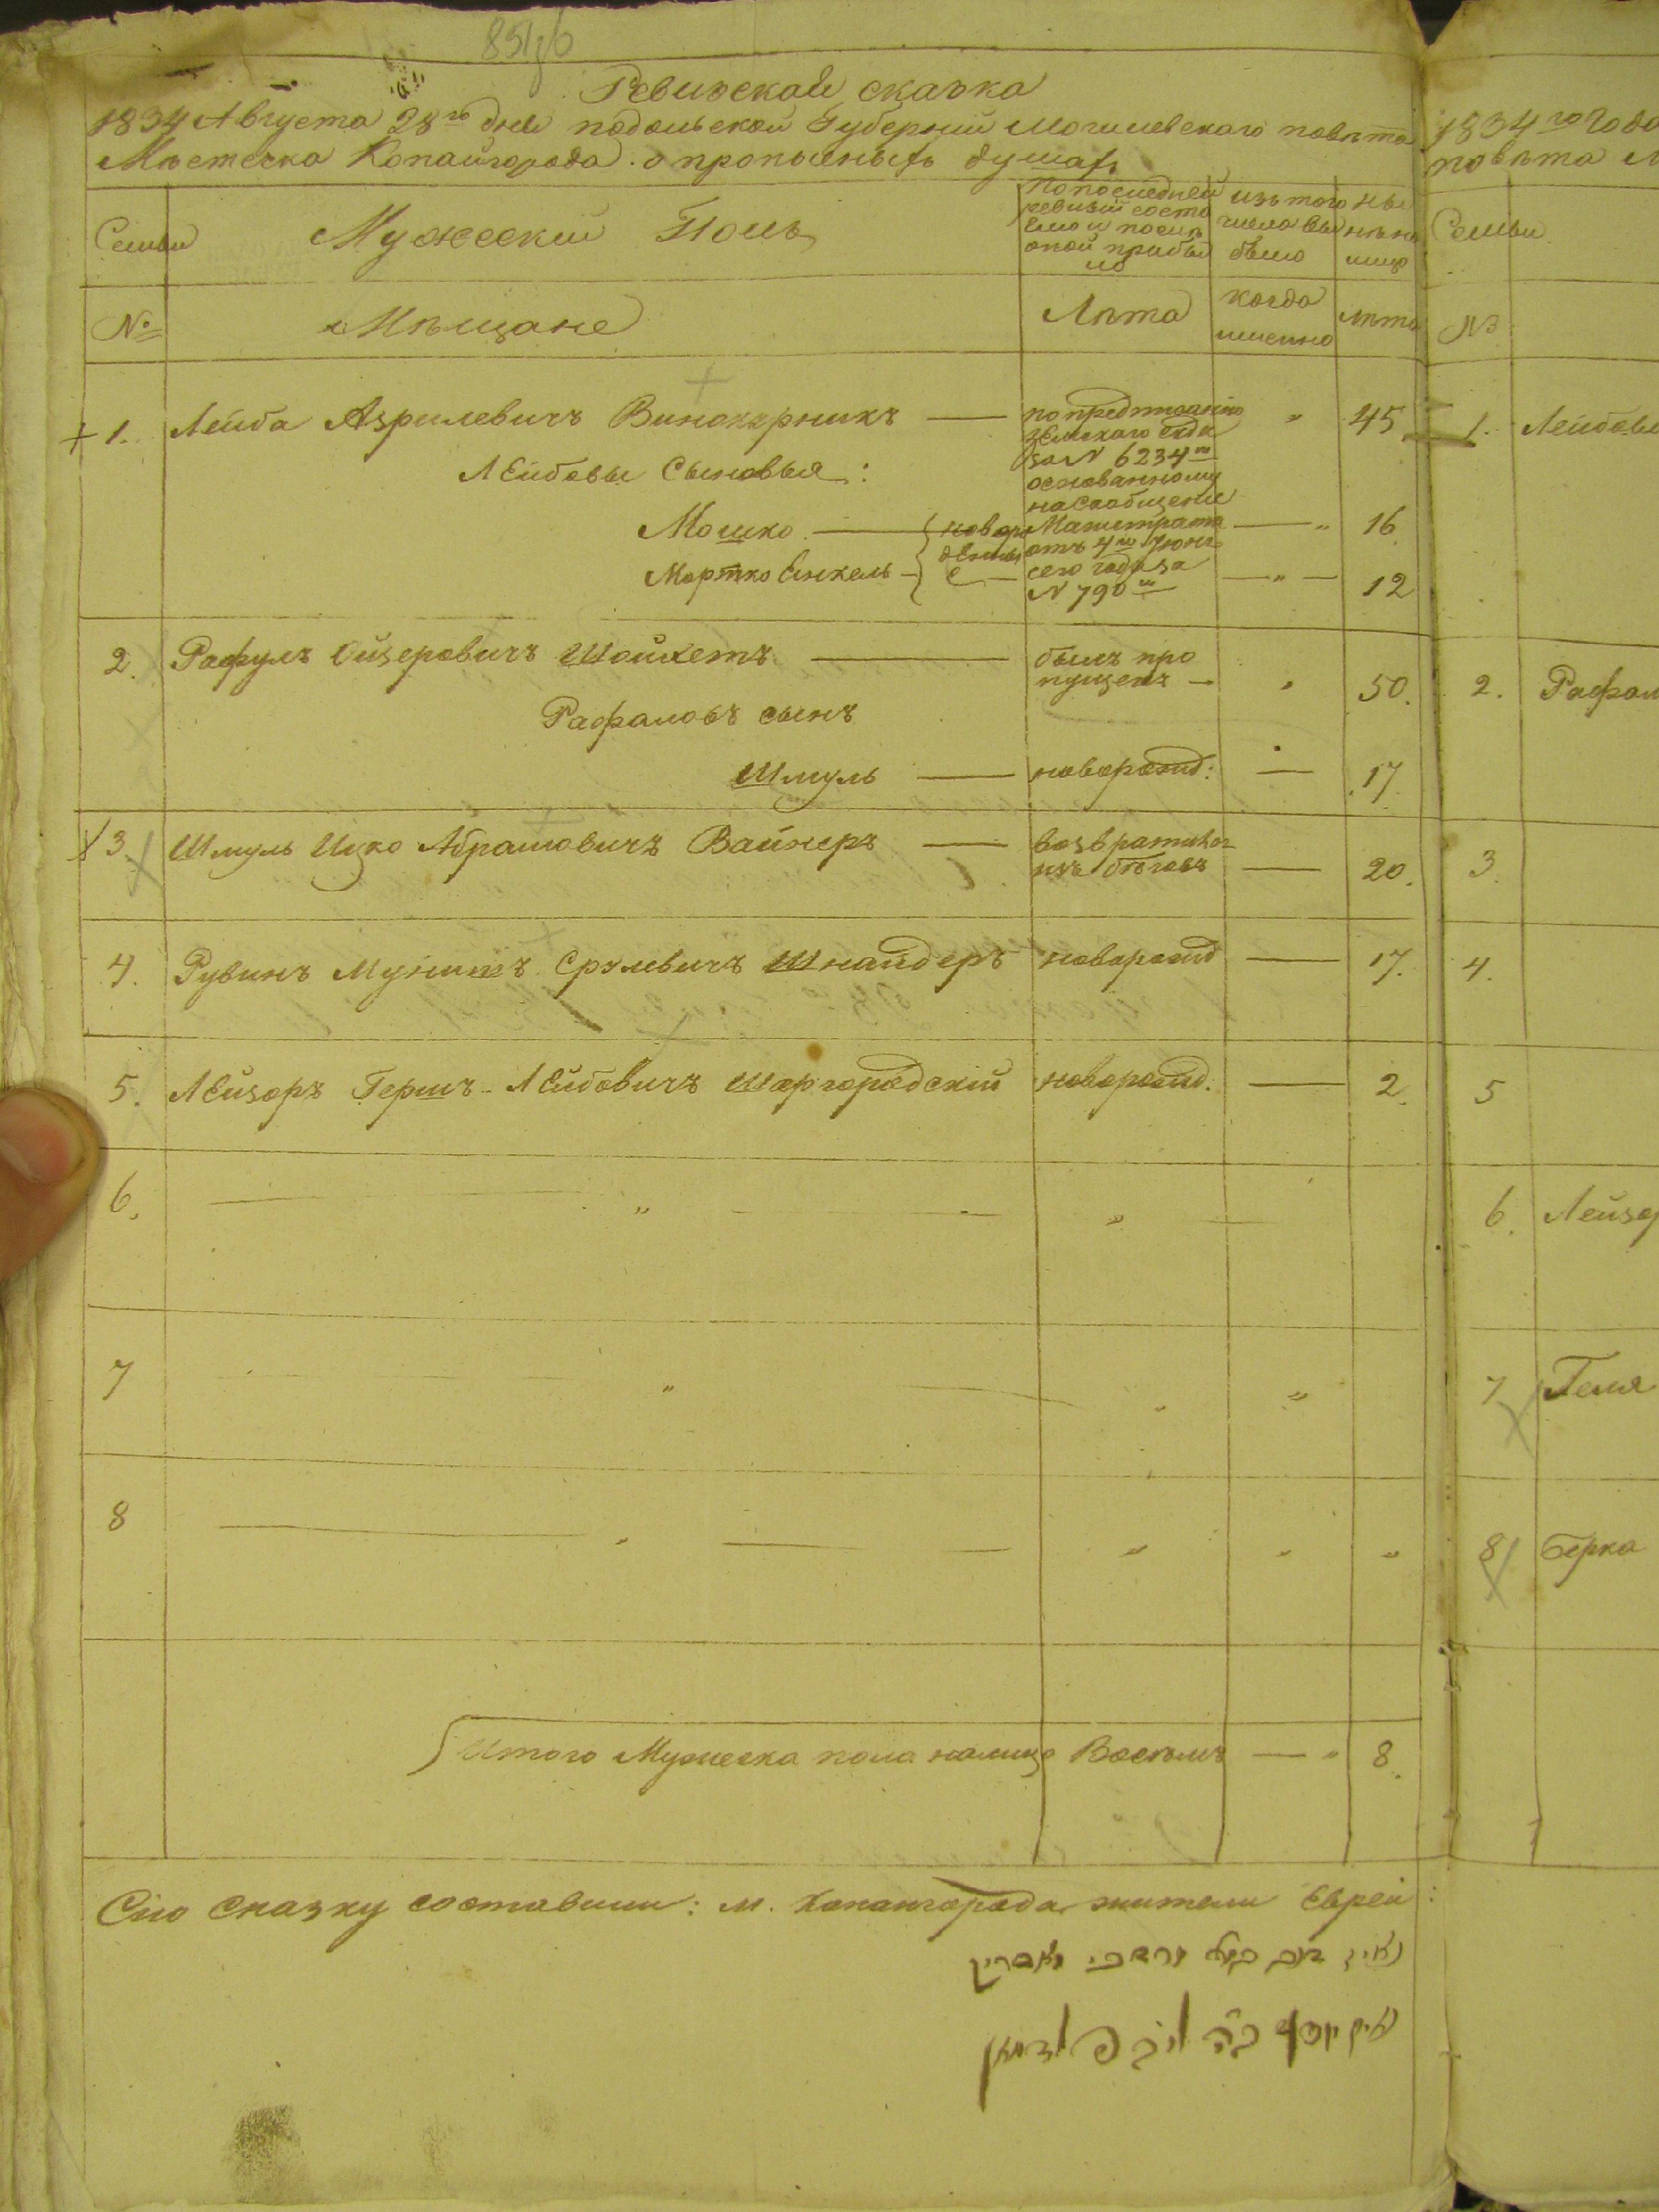 851 об
Ревизская сказка
1834 Августа 28го дня Подольской Губернии Могилевского повета
Местечка Копайгорода о прописных душах
Семьи
Мужеский Полъ
По последней ревизии состояло и после оной прибыло
изъ того числа выбыло
ныне на лицо
№
Мѣщане
Лѣта
когда именно
лѣта
1. Лейба Азрилевичъ Винокурникъ — по предписанію земскаго суда за № 6234м основанному на сообщение Магистрата отъ 4го Июня сего года за № 790м „ 45
Лейбовы Сыновья:
Мошко — новорожденные — „ 16
Мортко Янкель — — „ — 12
2. Рафулъ Ойзеровичъ Шойхетъ — былъ пропущенъ — „ 50.
Рафаловъ сынъ
Шмуль — новорожд: — 17.
3. Шмуль Ицко Абрамовичъ Вайнеръ — возвратився изъ беговъ — 20.
4. Рувинъ Мунишъ Срулевичъ Шнайдеръ новорожд — 17.
5. Лейзоръ Гершъ Лейбовичъ Шаргородскій новорожд. — 2.
6. — „ — „ —
7 „ „ „
8 — „ — „ „ „
Итого Мужеска пола налицо Восемъ — „ 8.
Сию Сказку составили: м. Капайгорода жители Евреи:
1834го Года
повета
Семьи
№
1. Лейбовы
2. Рафал
3.
4.
5
6. Лейзор
7 Геня
8 Берка